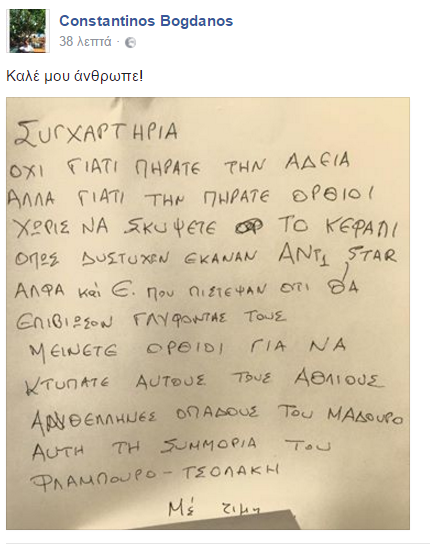 Constantinos Bogdanos
38 λεπτά ·
Καλέ μου άνθρωπε!
ΣΥΓΧΑΡΤΗΡΙΑ
ΟΧΙ ΓΙΑΤΙ ΠΗΡΑΤΕ ΤΗΝ ΑΔΕΙΑ
ΑΛΛΑ ΓΙΑΤΙ ΤΗΝ ΠΗΡΑΤΕ ΟΡΘΙΟΙ
ΧΩΡΙΣ ΝΑ ΣΚΥΨΕΤΕ ΤΟ ΚΕΦΑΛΙ
ΟΠΩΣ ΔΥΣΤΥΧΩΝ ΕΚΑΝΑΝ ΑΝΤ1, STAR
ΑΛΦΑ και Ε. που ΠΙΣΤΕΨΑΝ ΟΤΙ ΘΑ
ΕΠΙΒΙΩΣΟΝ ΓΛΥΦΟΝΤΑΣ ΤΟΥΣ
ΜΕΙΝΕΤΕ ΟΡΘΙΟΙ ΓΙΑ ΝΑ
ΚΤΥΠΑΤΕ ΑΥΤΟΥΣ ΤΟΥΣ ΑΘΛΙΟΥΣ
ΑΝΘΕΛΛΗΝΕΣ ΟΠΑΔΟΥΣ ΤΟΥ ΜΑΔΟΥΡΟ
ΑΥΤΗ ΤΗ ΣΥΜΜΟΡΙΑ ΤΟΥ
ΦΛΑΜΠΟΥΡΟ-ΤΣΟΛΑΚΗ
Μέ τιμη